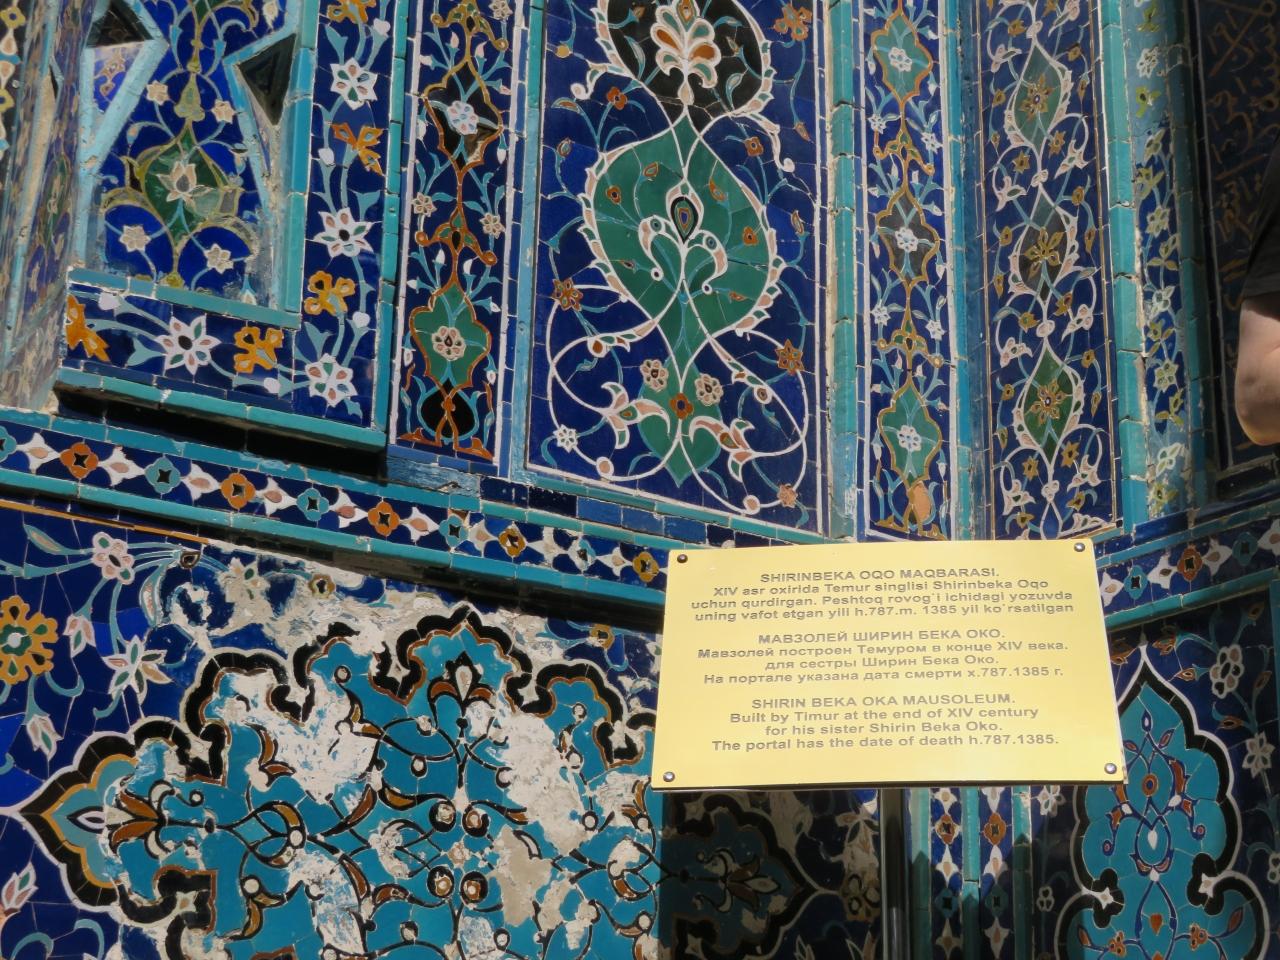 SHIRINBEKA OQO MAQBARASI.
XIV asr oxirida Temur singlisi Shirinbeka Oqo
uchun qurdirgan. Peshtoq rovog`i ichidagi yozuvda
uning vafot etgan yili h.787.m. 1385 yil ko`rsatilgan
МАВЗОЛЕЙ ШИРИН БЕКА ОКО.
Мавзолей построен Темуром в конце XIV века.
для сестры Ширин Бека Око.
На портале указана дата смерти х.787.1385 г.
SHIRIN BEKA OKA MAUSOLEUM.
Built by Timur at the end of XIV century
for his sister Shirin Beka Oko.
The portal has the date of death h.787.1385.